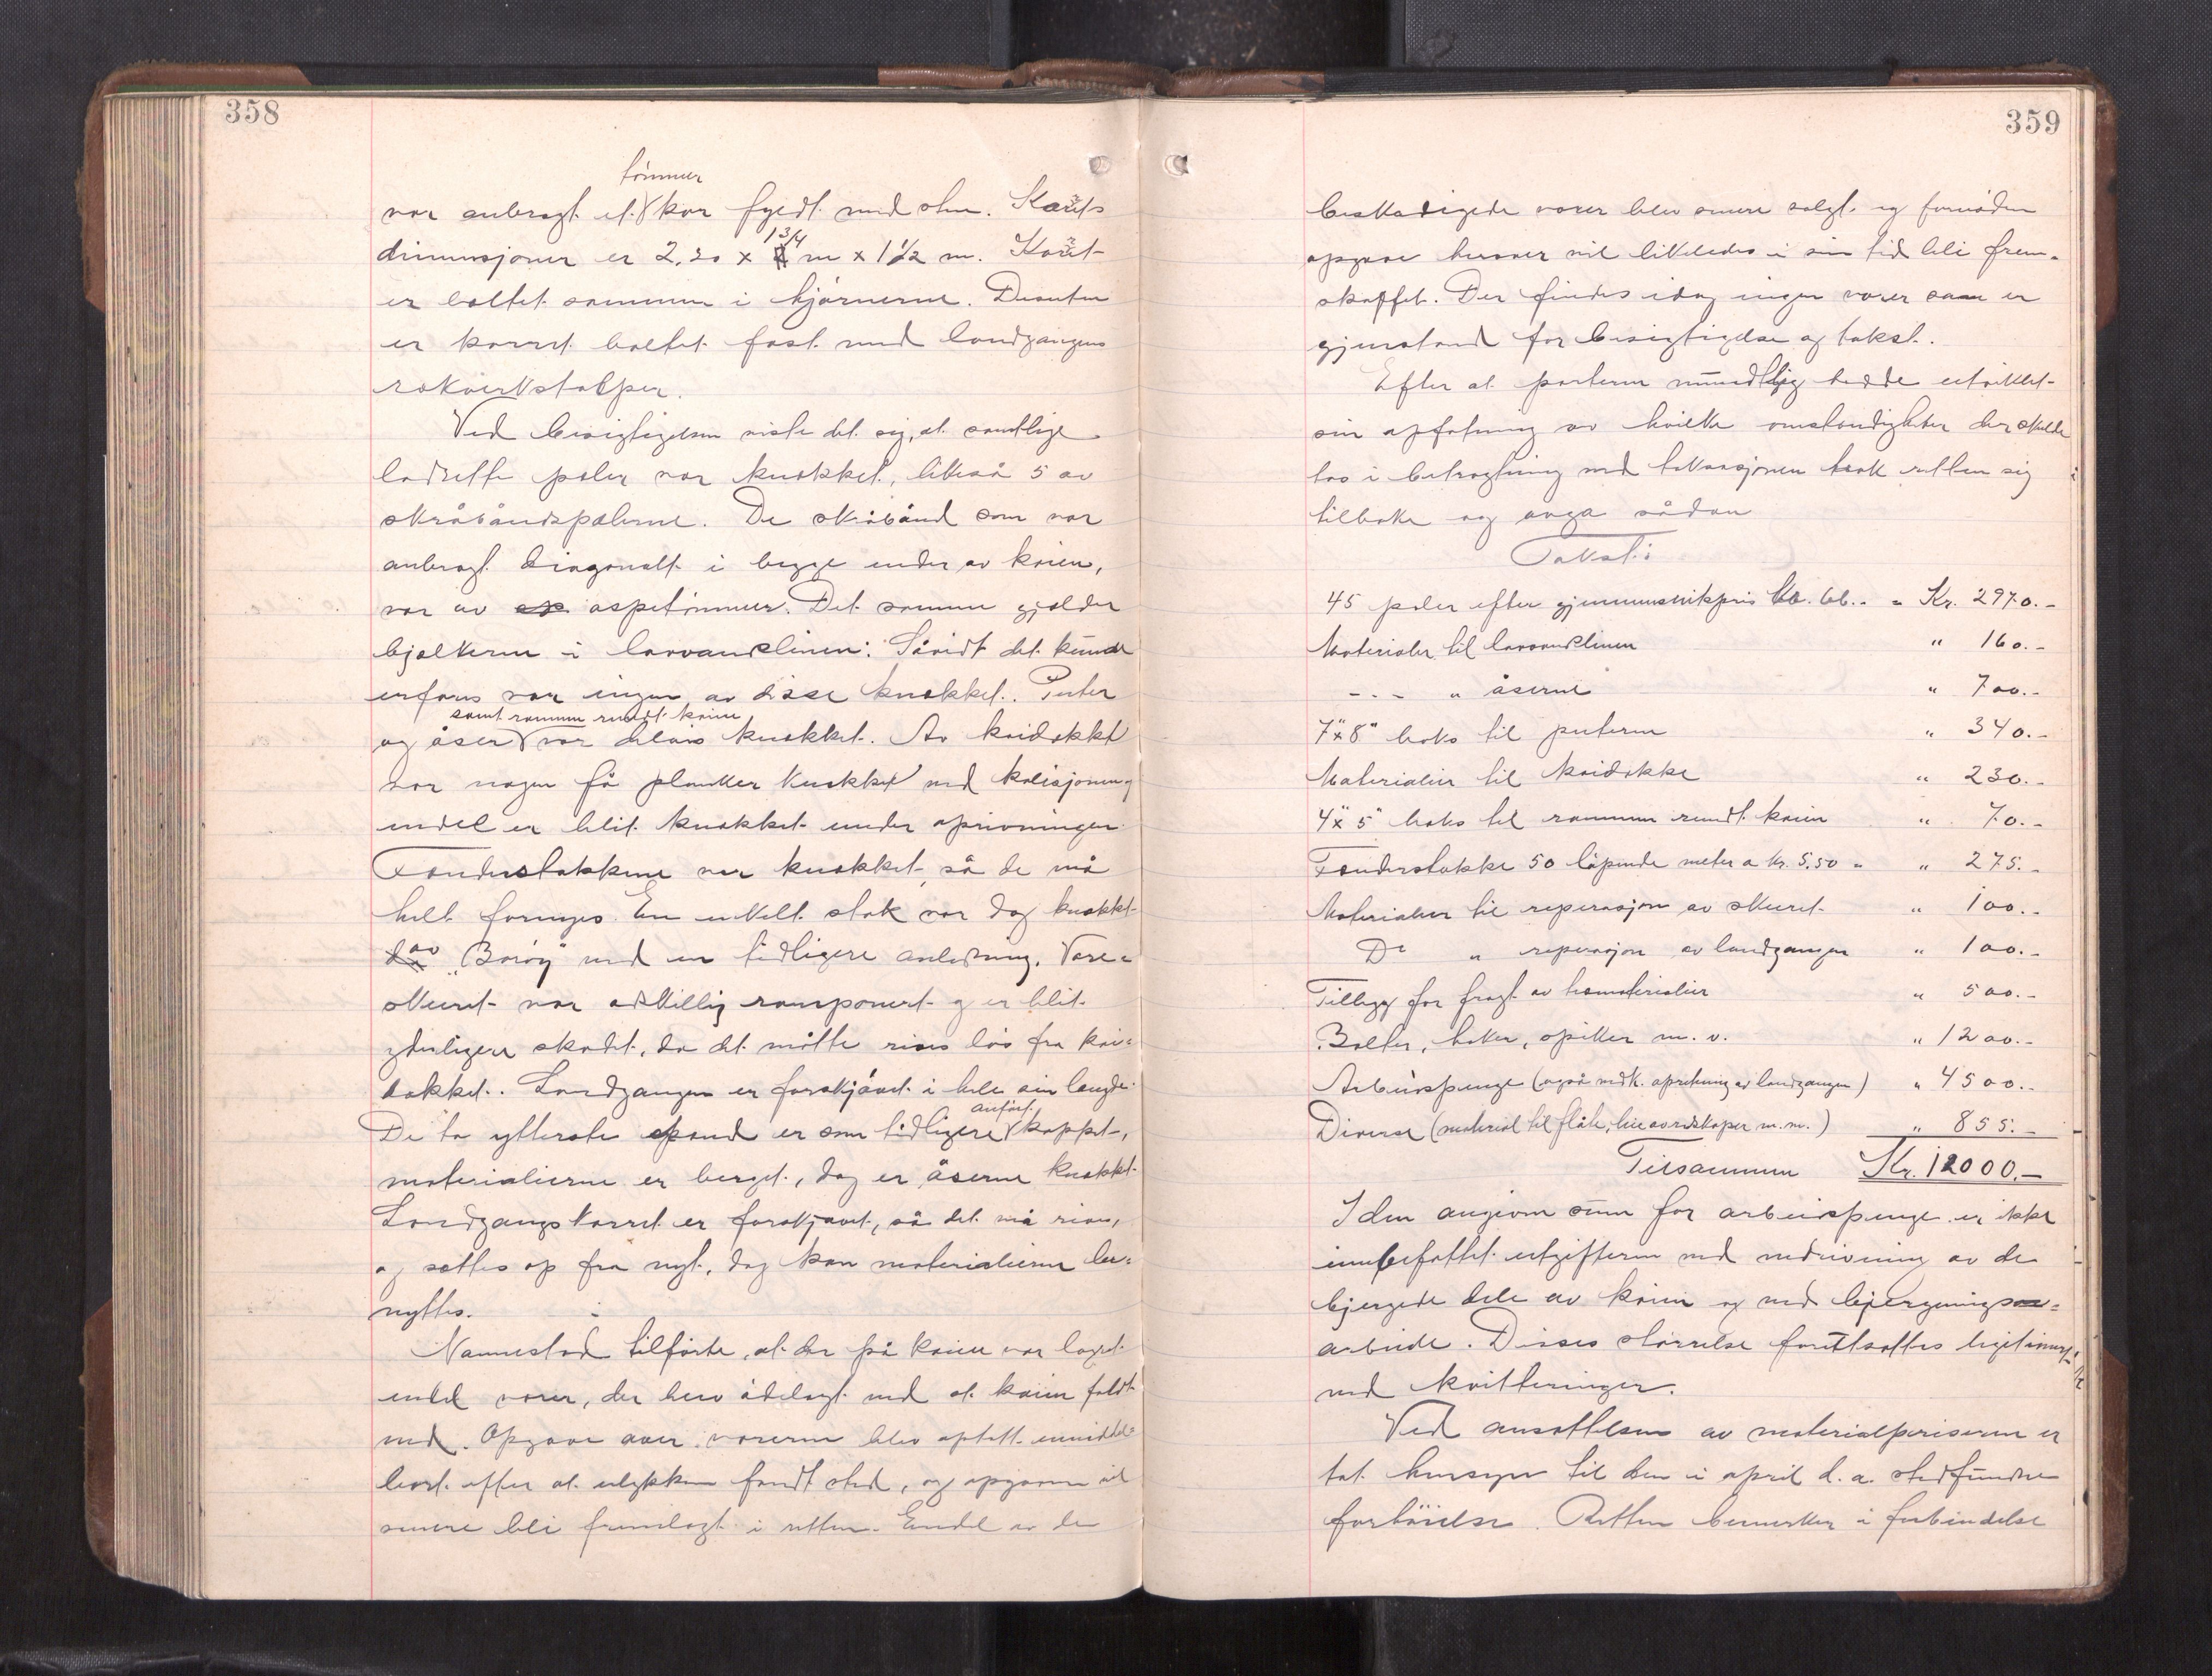 358
tömmer
var anbragt et kar fyldt med sten. Karets
1 3/4
dimensjoner er 2.20 x m x 1 1/2 m. Karet
er boltet sammen i hjörnerne. Desuten
er karret boltet fast med landgangens
rækverkstolper.
Ved besigtigelsen viste det sig, at samtlige
lodrette pæler var knækket, likeså 5 av
skråbåndspælerne. De skråbånd som var
anbragt diagonalt i begge ender av kaien,
var av aspetömmer. Det samme gjælder
bjælkerne i lavvandslinien. Såvidt det kunde
erfares var ingen av disse knækket. Puter
samt rammen rundt kaien
og åser var delvis knækket. Av kaidækket
var nogen få planker knækket ved kolisjonen og
endel er blit knækket under oprivningen.
Fenderstokkene var knækket, så de må
helt fornyes. En enkelt stok var dog knækket
av "Boröy" ved en tidligere anledning. Vare-
skuret var adskillig ramponert og er blit
yderligere skadet, da det måtte rives lös fra kai-
dækket. Landgangen er forskjövet i hele sin længde.
anfört
De to ytterste spand er som tidligere kappet,
materialierne er berget, dog er åserne knækket
Landgangskarret er forskjövet, så det må rives,
og sættes op fra nyt, dog kan materialierne be-
nyttes.
Nannestad tilförte, at der på kaien var lagret
endel varer, der blev ödelagt ved at kaien faldt
ned. Opgave over varerne blev optatt umiddel-
bart efter at ulykken fandt sted, og opgaven vil
senere bli fremlagt i retten. Endel av de
359
beskadigede varer blev senere solgt og fornöden
opgave herover vil likeledes i sin tid bli frem-
skaffet. Der findes idag ingen varer som er
gjenstand for besigtigelse og takst.
Efter at parterne mundtlig hadde utviklet
sin opfatning av hvilke omstændigheter der skulde
tas i betragtning ved taksasjonen trak retten sig
tilbake og avga sådan
Takst:
45 pæler efter gjennemsnitspris kr. 66.- = Kr. 2970.-
Materialer til lavvandslinien " 160.-
-.- " åserne " 700.-
7"x8" boks til puterne " 340.-
Materialier til kaidække " 230.-
4"x5" boks til rammen rundt kaien " 70.-
Fenderstokke 50 löpende meter a kr. 5.50 = " 275.-
Materialier til reperasjon av skuret " 100.-
Do " reperasjon av landgangen " 100.-
Tillegg for fragt av træmaterialier " 500.-
Bolter, haker, spiker m. v. " 1200.-
Arbeidspenge (også medr. opretning av landgangen) " 4500.-
Diverse (material til flåte, leie av redskaper m.m.) " 855.-
Tilsammen Kr. 12000.-
I den angivne sum for arbeidspenge er ikke
innbefattet utgifterne ved nedrivning av de
bjergede dele av kaien og ved bjergnings-
arbeide. Disses störrelse forutsættes legitimert
ved kvitteringer.
Ved ansættelsen av materialpriserne er
tat hensyn til den i april d.a. stedfundne
forhöielse. Retten bemerker i forbindelse